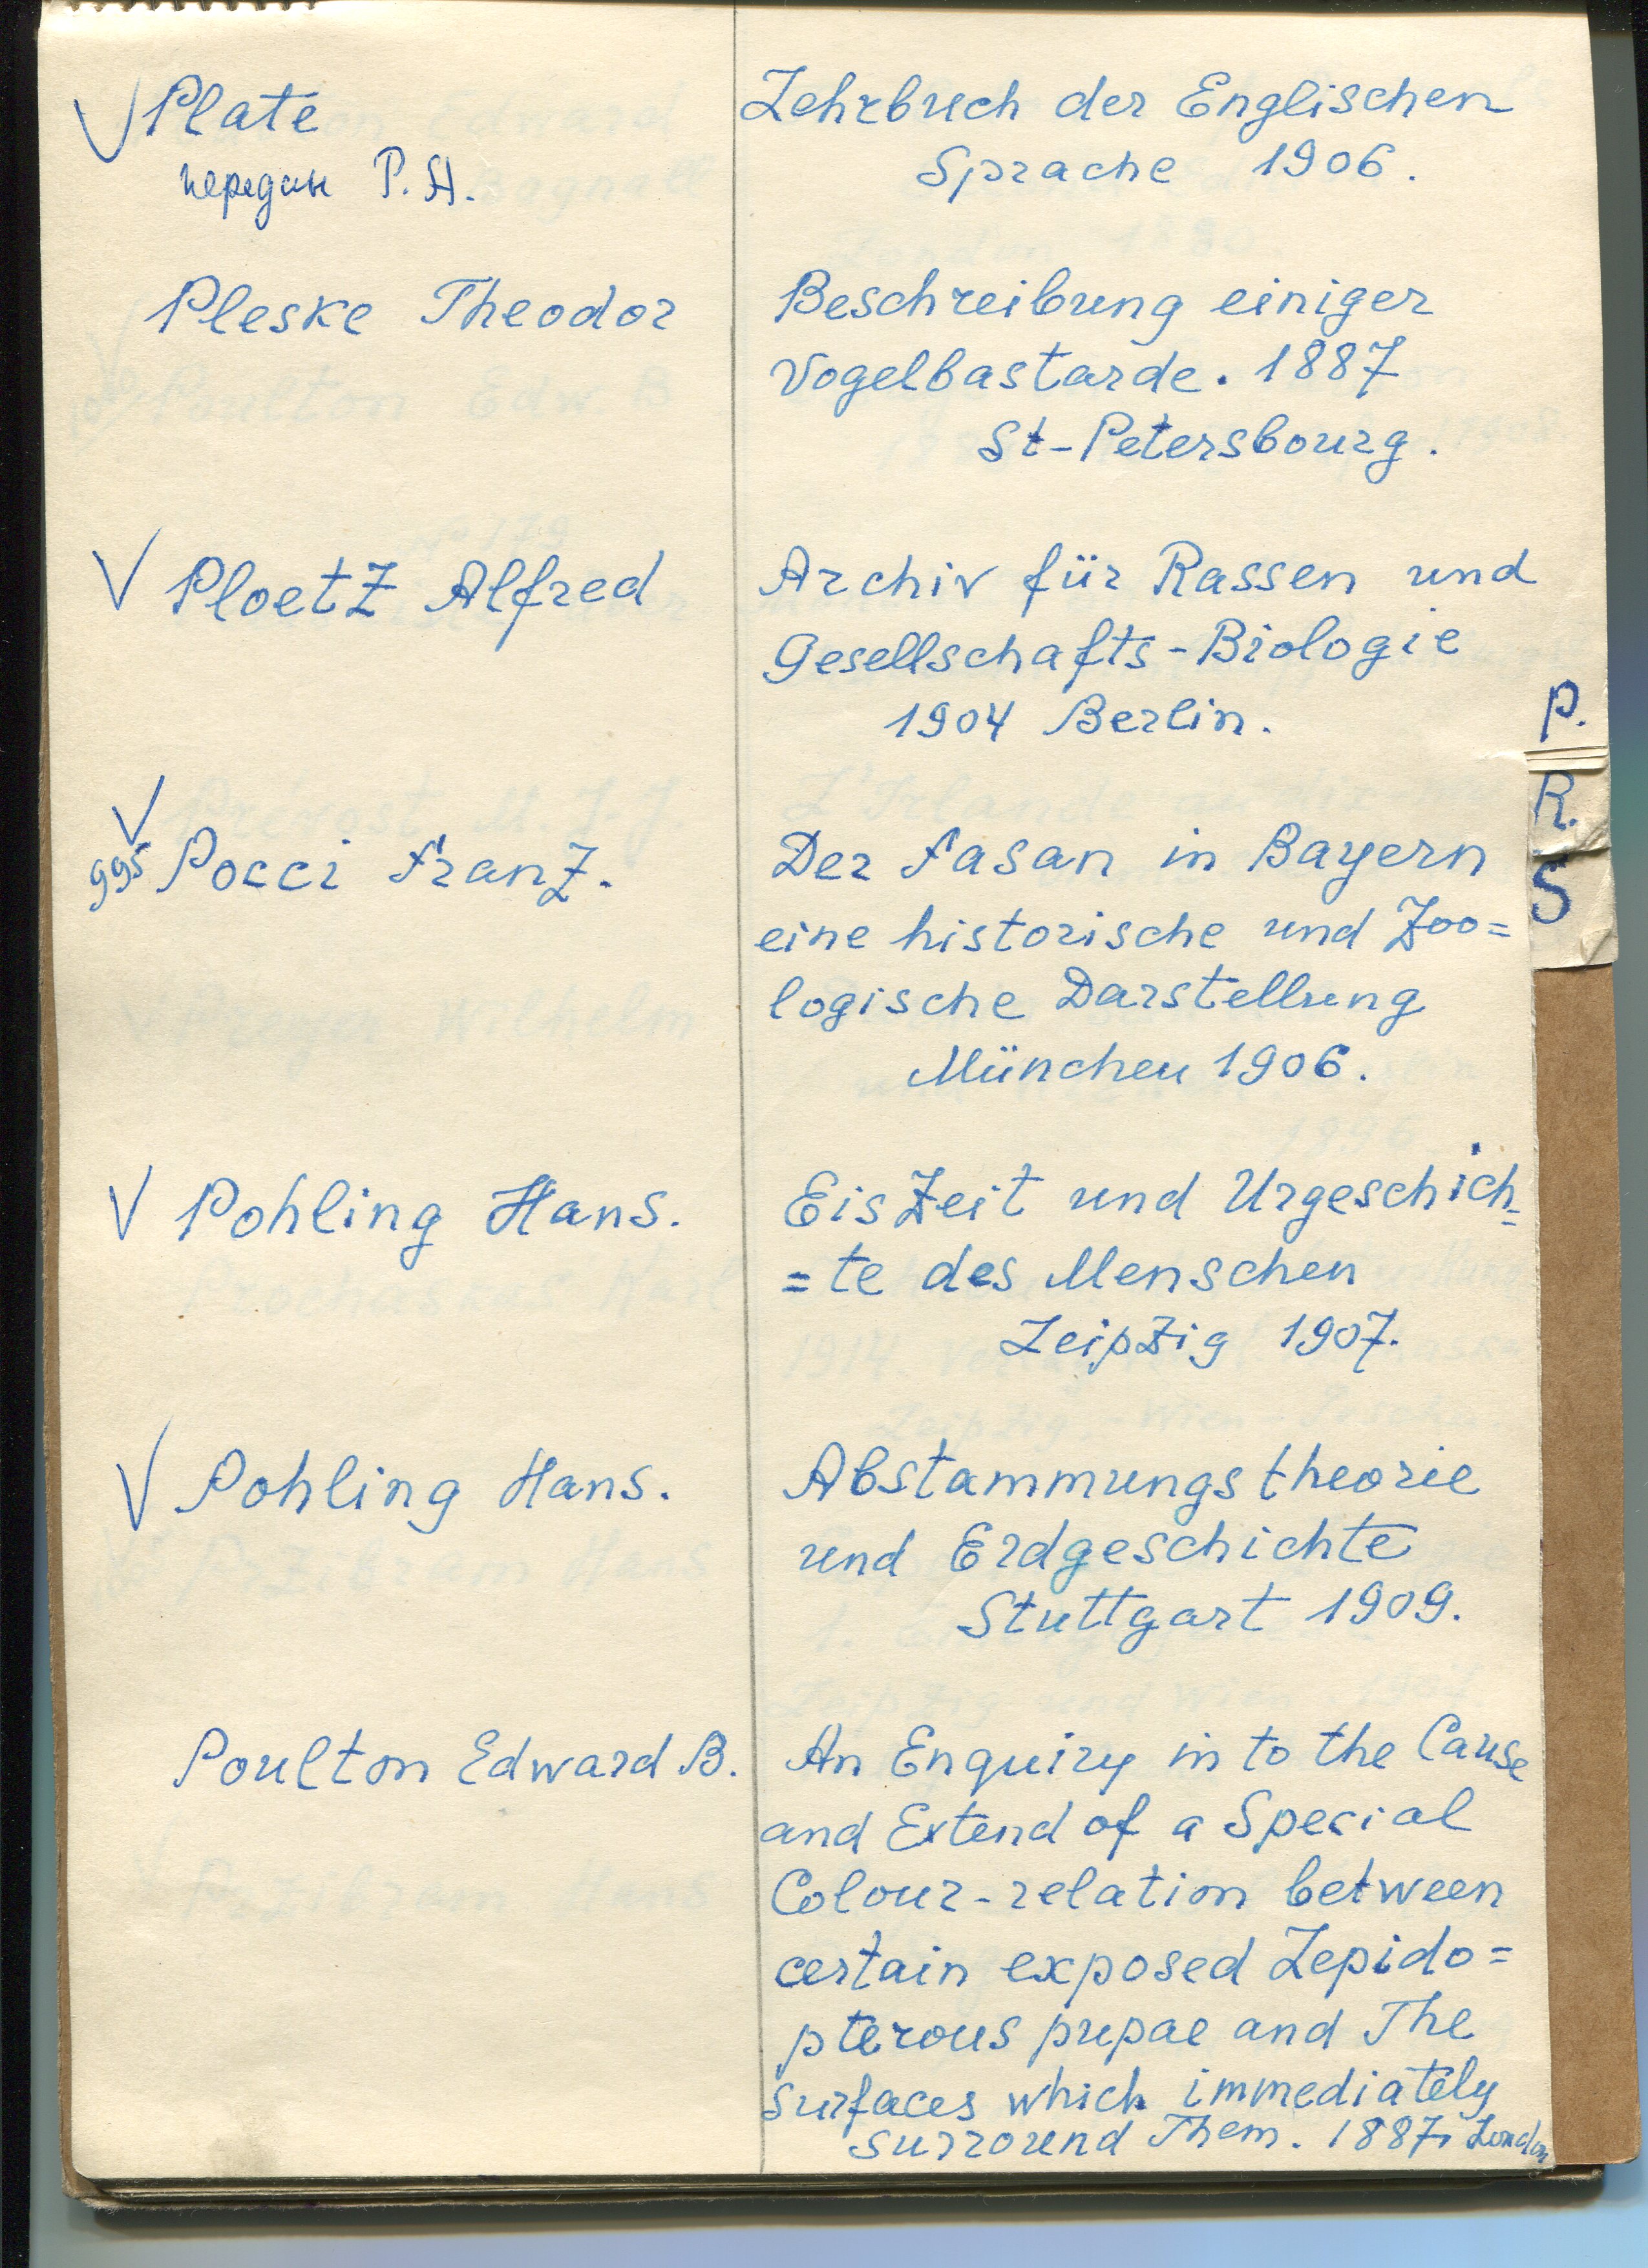 √ Plate
Lehrbuch der Englischen
Sprache 1906.
передан Р. Н.
Pleske Theodor
Beschreibung einiger
Vogelbastarde. 1887
St-Petersbourg.
√ Ploetz Alfred
Archiv für Rassen und
Gesellschafts-Biologie
1904 Berlin.
√
995 Pocci Franz.
Der Fasan in Bayern
eine historische und Zoo=
logische Darstellung
München 1906.
√ Pohling Hans.
EisZeit und Urgeschich=
=te des Menschen
Leipzig 1907.
√ Pohling Hans.
Abstammungstheorie
und Erdgeschichte
Stuttgart 1909.
Poulton Edward B.
An Enquiry in to the Cause
and Extend of a Special
Colour-relation between
certain exposed Lepido=
pterous pupae and The
surfaces which immediately
surround Them. 1887, London
P.
R.
S